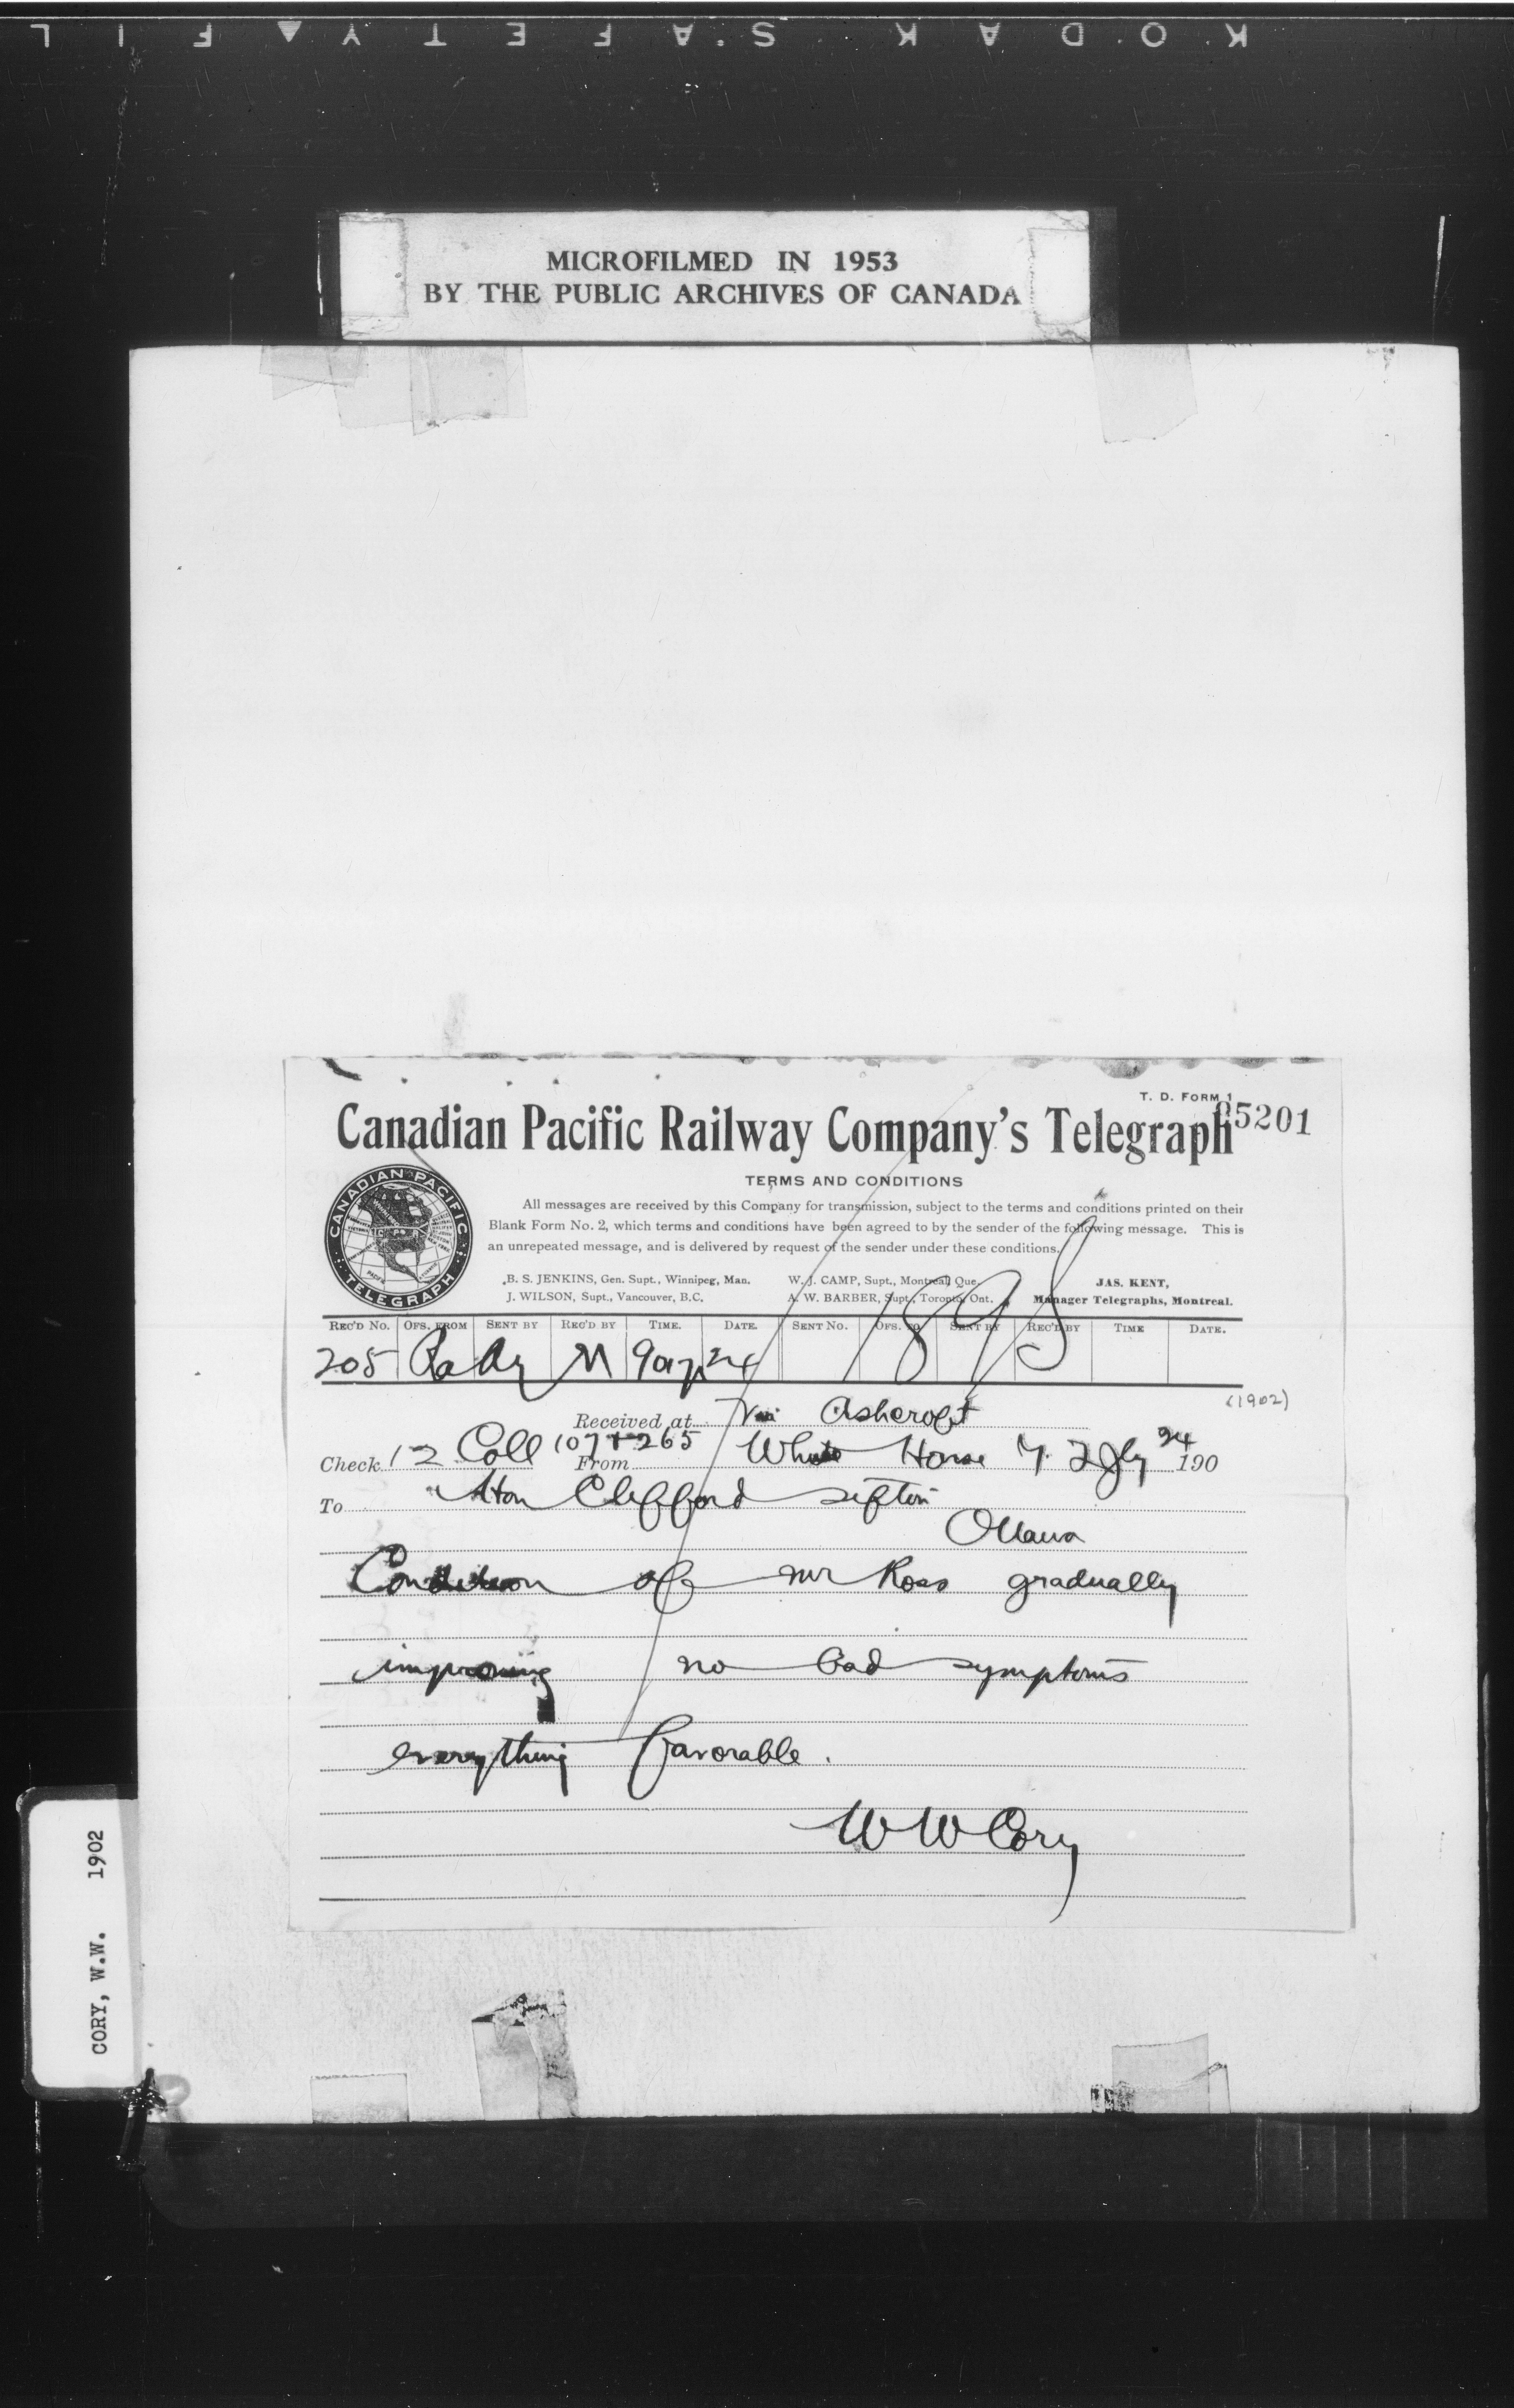 KODAK SAFETY FIL
MICROFILMED IN 1953
BY THE PUBLIC ARCHIVES OF CANADA
T. D. FORM 1
85201
Canadian Pacific Railway Company's Telegraph
TERMS AND CONDITIONS
CANADIAN PACIFIC
TELEGRAPH
All messages are received by this Company for transmission, subject to the terms and conditions printed on their
Blank Form No. 2, which terms and conditions have been agreed to by the sender of the following message. This is
an unrepeated message, and is delivered by request of the sender under these conditions.
B. S. JENKINS, Gen. Supt., Winnipeg, Man. W. J. CAMP, Supt., Montreal, Que. JAS. KENT,
J. WILSON, Supt., Vancouver, B.C. A. W. BARBER, Supt., Toronto, Ont. Manager Telegraphs, Montreal.
REC'D No. OFS. FROM SENT BY REC'D BY TIME. DATE. SENT No. OFS. TO SENT BY REC'D BY TIME DATE.
205 M 24
(1902)
Received at Via Ashcroft
Check 12 Coll 107 + 265 From White Horse Y. T Jly 24 190
To Hon Clifford Sifton
Ottawa
Condition of mr Ross gradually
improving no bad symptoms
everything favorable.
W W Cory
CORY, W.W. 1902